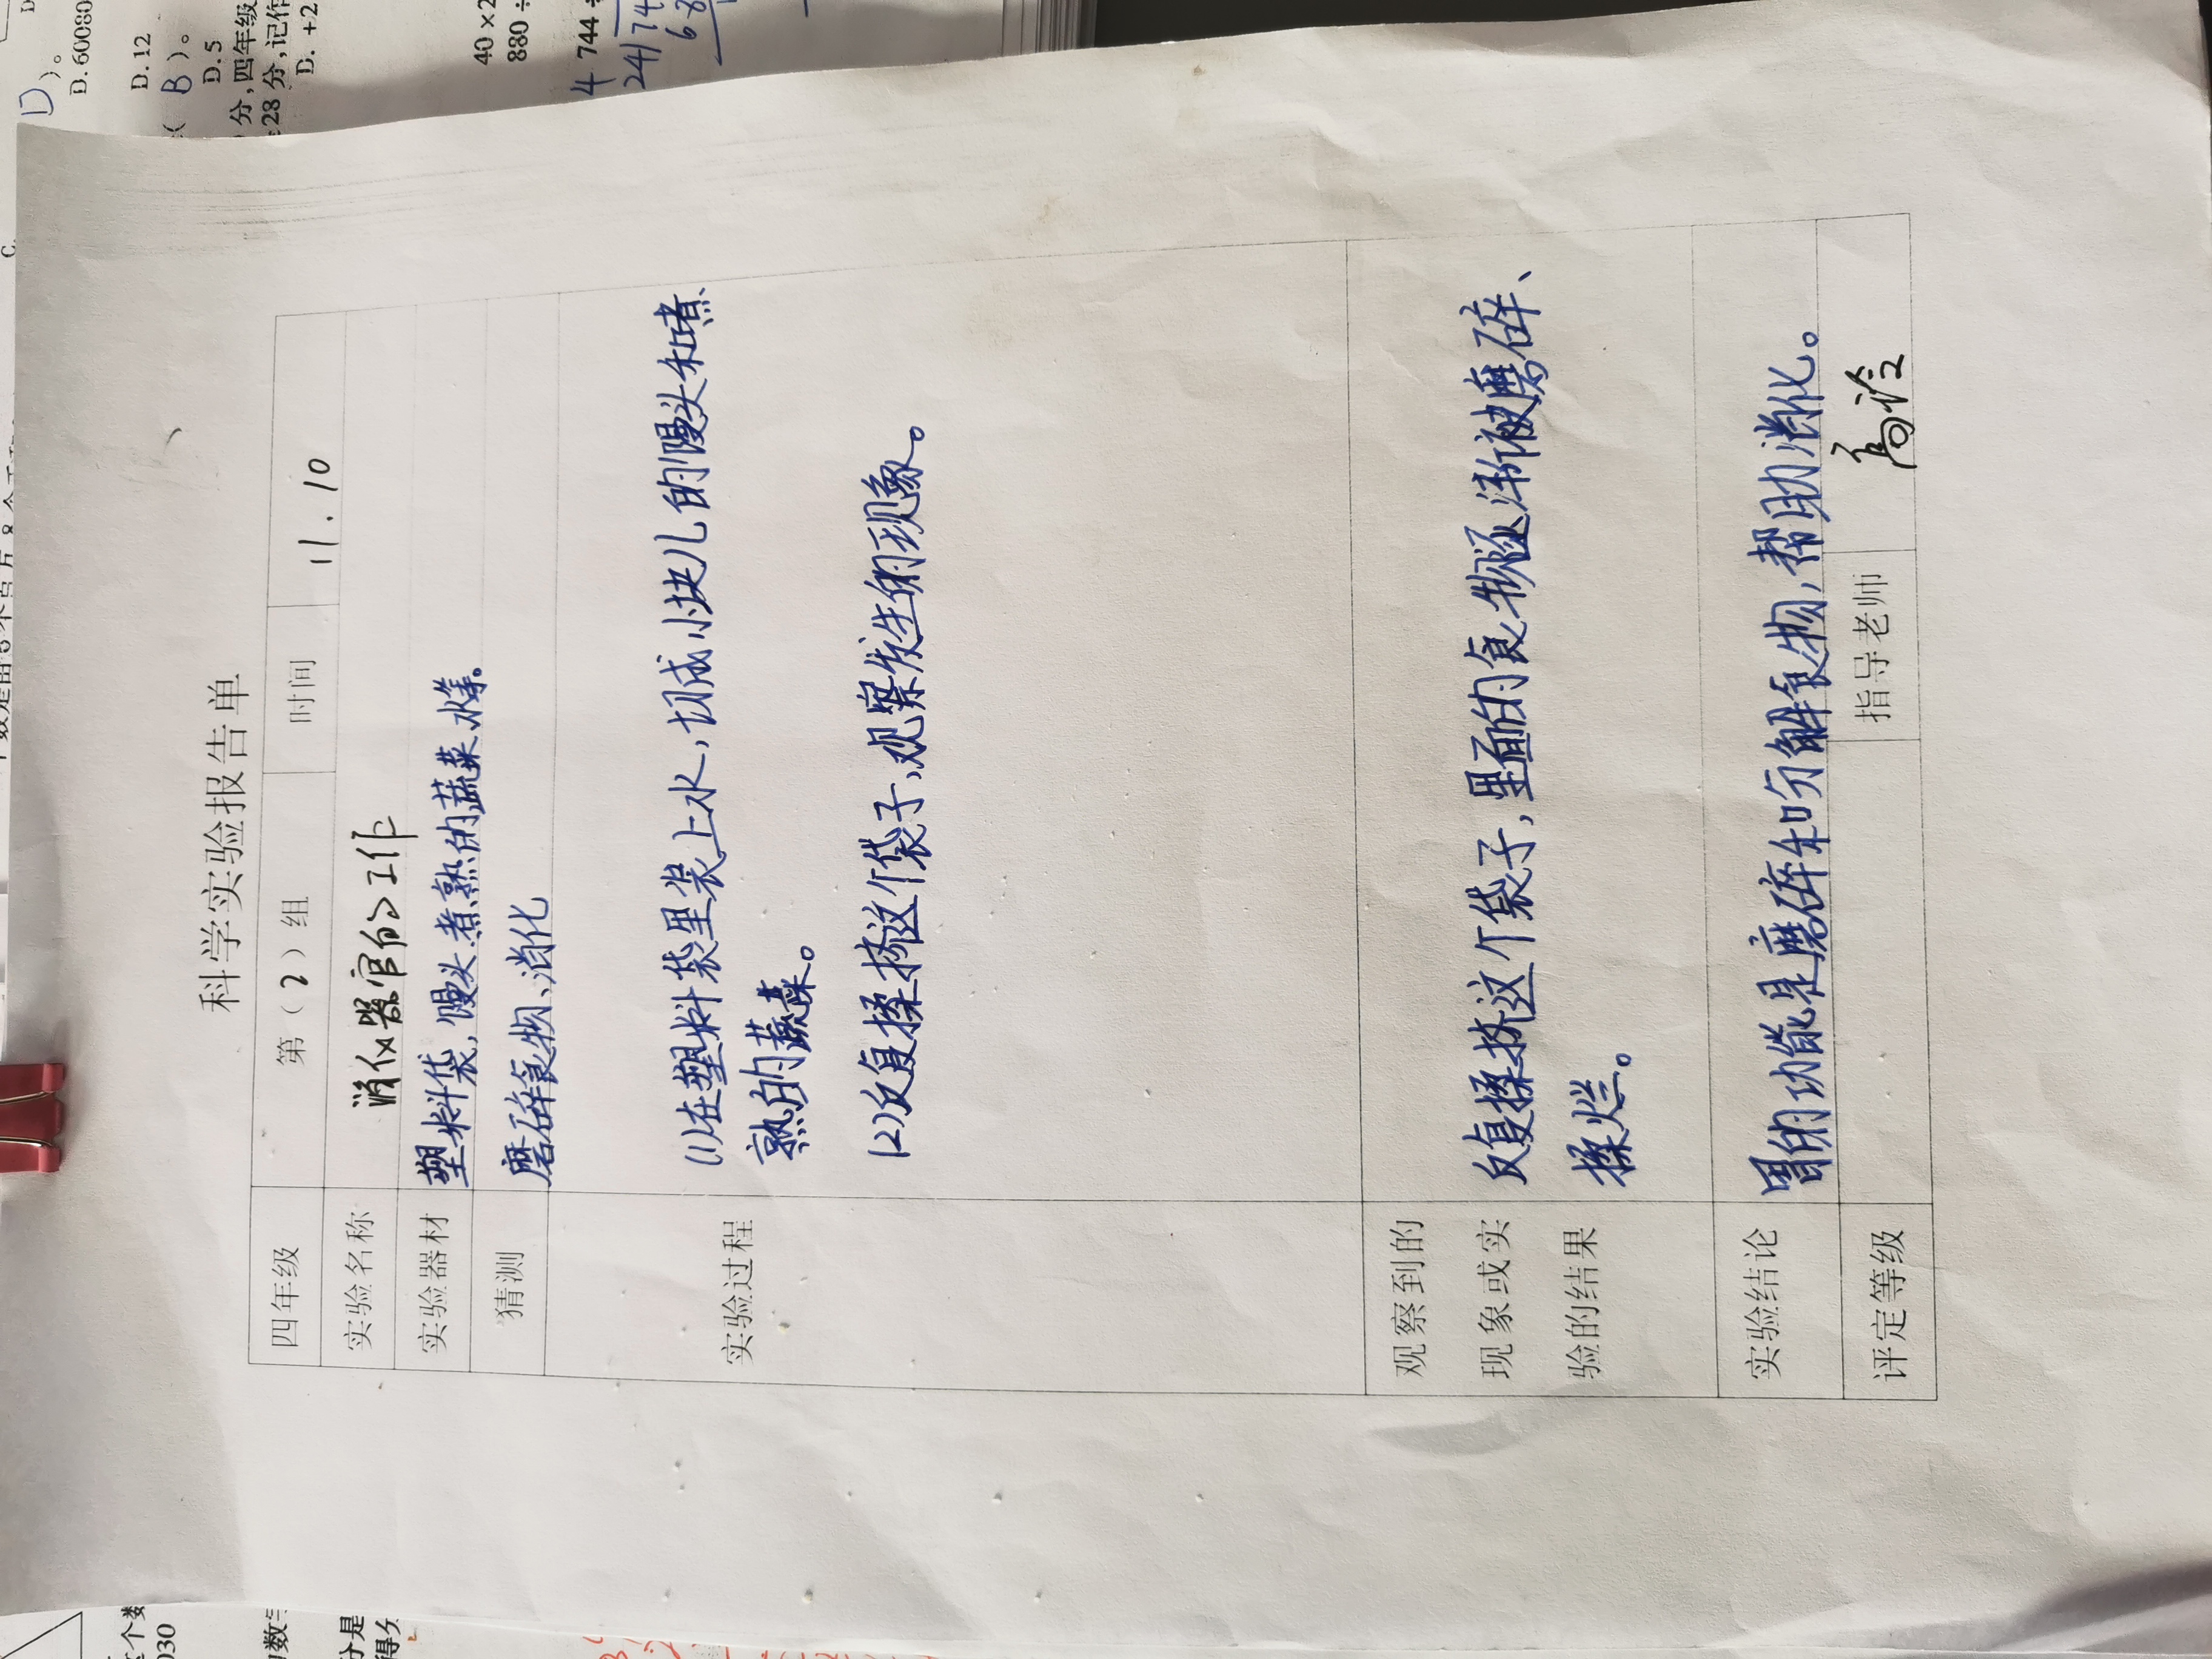 科学实验报告单
四年级 第（2）组 时间 11.10
实验名称 消化器官的工作
实验器材 塑料袋,馒头.煮熟的蔬菜.水等。
猜测 磨碎食物、消化
实验过程
(1)在塑料袋里装上水,切成小块儿的馒头和煮
熟的蔬菜。
(2)反复揉挤这个袋子,观察发生的现象。
观察到的
现象或实
验的结果
反复揉挤这个袋子,里面的食物逐渐被磨碎、
揉烂。
实验结论 胃的功能是磨碎和分解食物,帮助消化。
评定等级 指导老师 高
D）。
D.60080
D.12
（B）。
D.5
分,四年级
28分,记作
D.+2
40×2
880÷
744÷
030